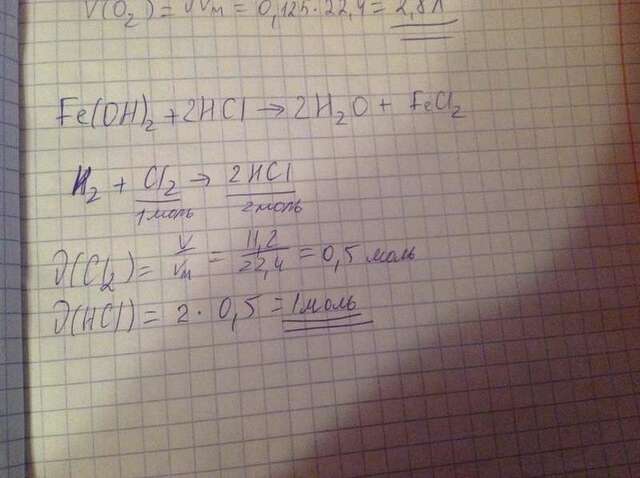 V(O₂) = νVм = 0,125·22,4 = 2,8л
Fe(OH)₂ + 2HCl → 2H₂O + FeCl₂
H₂ + Cl₂ → 2HCl
1моль 2моль
ν(Cl₂) = V/Vм = 11,2/22,4 = 0,5 моль
ν(HCl) = 2 · 0,5 = 1моль